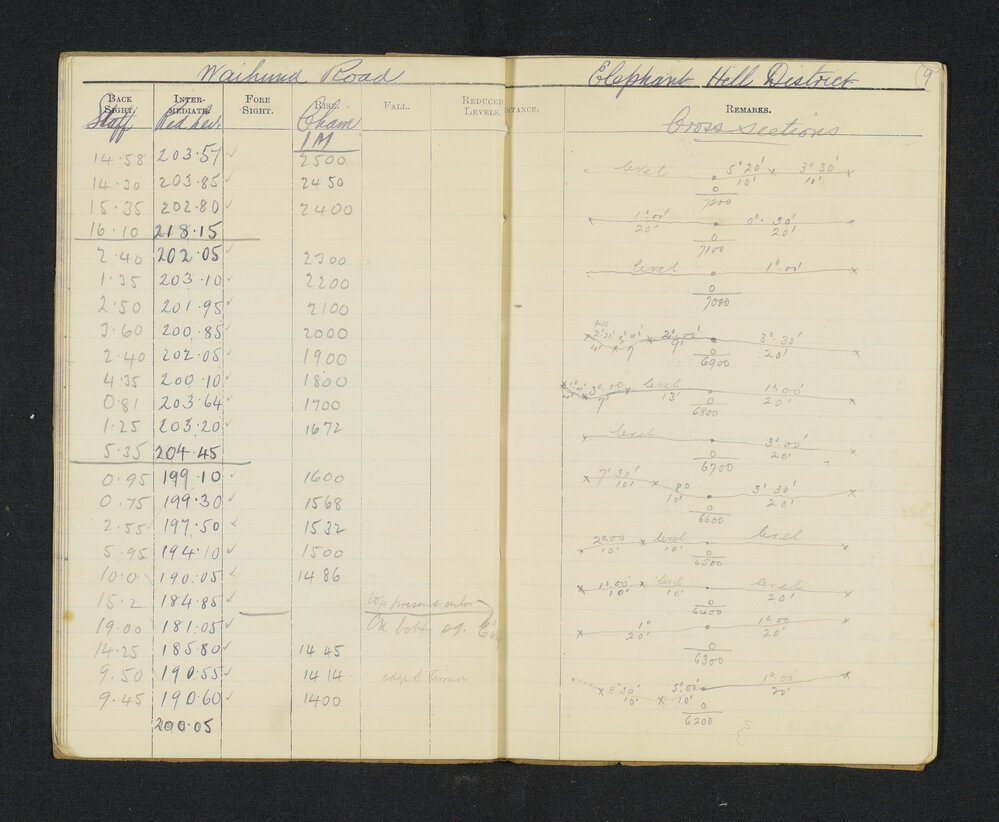 Waihund Road
BACK SIGHT. INTER-MEDIATE. FORE SIGHT. RISE. FALL. REDUCED LEVELS.
Staff Red. Lev. Chain
1M
14.58 203.57 ✓ 2500
14.30 203.85 ✓ 2450
15.35 202.80 ✓ 2400
16.10 218.15
2.40 202.05 ✓ 2300
1.35 203.10 ✓ 2200
2.50 201.95 ✓ 2100
3.60 200.85 ✓ 2000
2.40 202.05 ✓ 1900
4.35 200.10 ✓ 1800
0.81 203.64 ✓ 1700
1.25 203.20 ✓ 1672
5.35 204.45
0.95 199.10 ✓ 1600
0.75 199.30 ✓ 1568
2.55 197.50 ✓ 1532
5.95 194.10 ✓ 1500
10.0 190.05 ✓ 1486
15.2 184.85 ✓ top present
19.00 181.05 ✓ On bott.
14.25 185.80 ✓ 1445
9.50 190.55 ✓ 1414 edge of
9.45 190.60 ✓ 1400
200.05
Elephant Hill District 9
DISTANCE. REMARKS.
Cross sections
level 5° 20' 3° 30'
10' 10'
0
7200
1° 00' 0° 30'
20' 20'
0
7100
level 1° 00'
0
7000
2° 00' 3° 30'
9' 20'
0
6900
level 1° 00'
7' 13' 20'
0
6800
level 3° 00'
20'
0
6700
7° 30' 3° 30'
10' 10' 20'
0
6600
level level
10' 10'
0
6500
level level
10' 10' 20'
0
6400
1° 1° 00'
20' 20'
0
6300
5° 00' 1° 00'
10' 10' 20'
0
6200